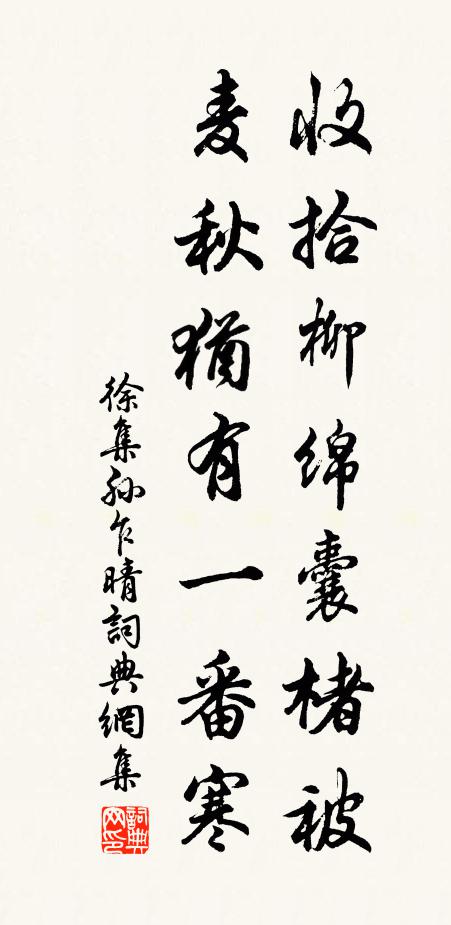 收拾柳绵囊楮被
麦秋犹有一番寒
徐集孙乍晴詞典網集
詞典网印